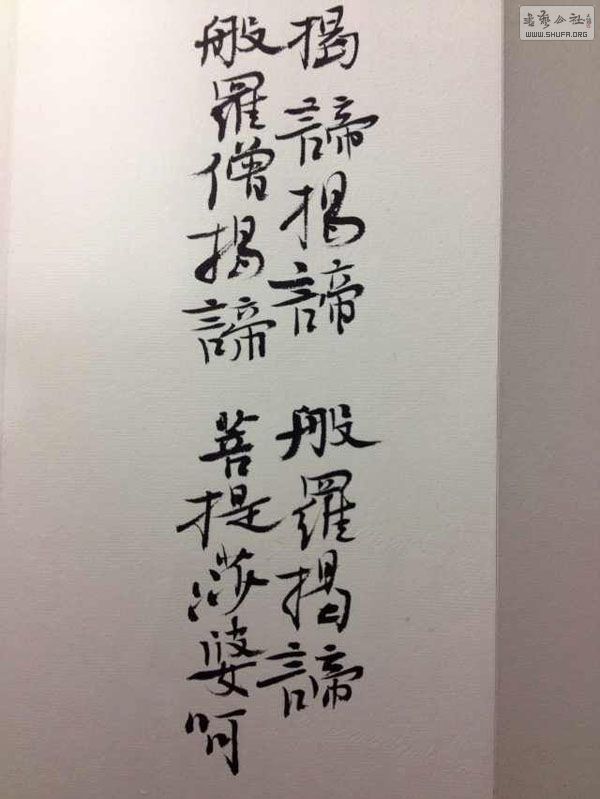 揭諦揭諦 般羅揭諦
般羅僧揭諦 菩提莎婆呵
書藝公社
WWW.SHUFA.ORG